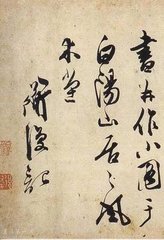 書并作小圖于
白陽山居之風
木堂
道復記